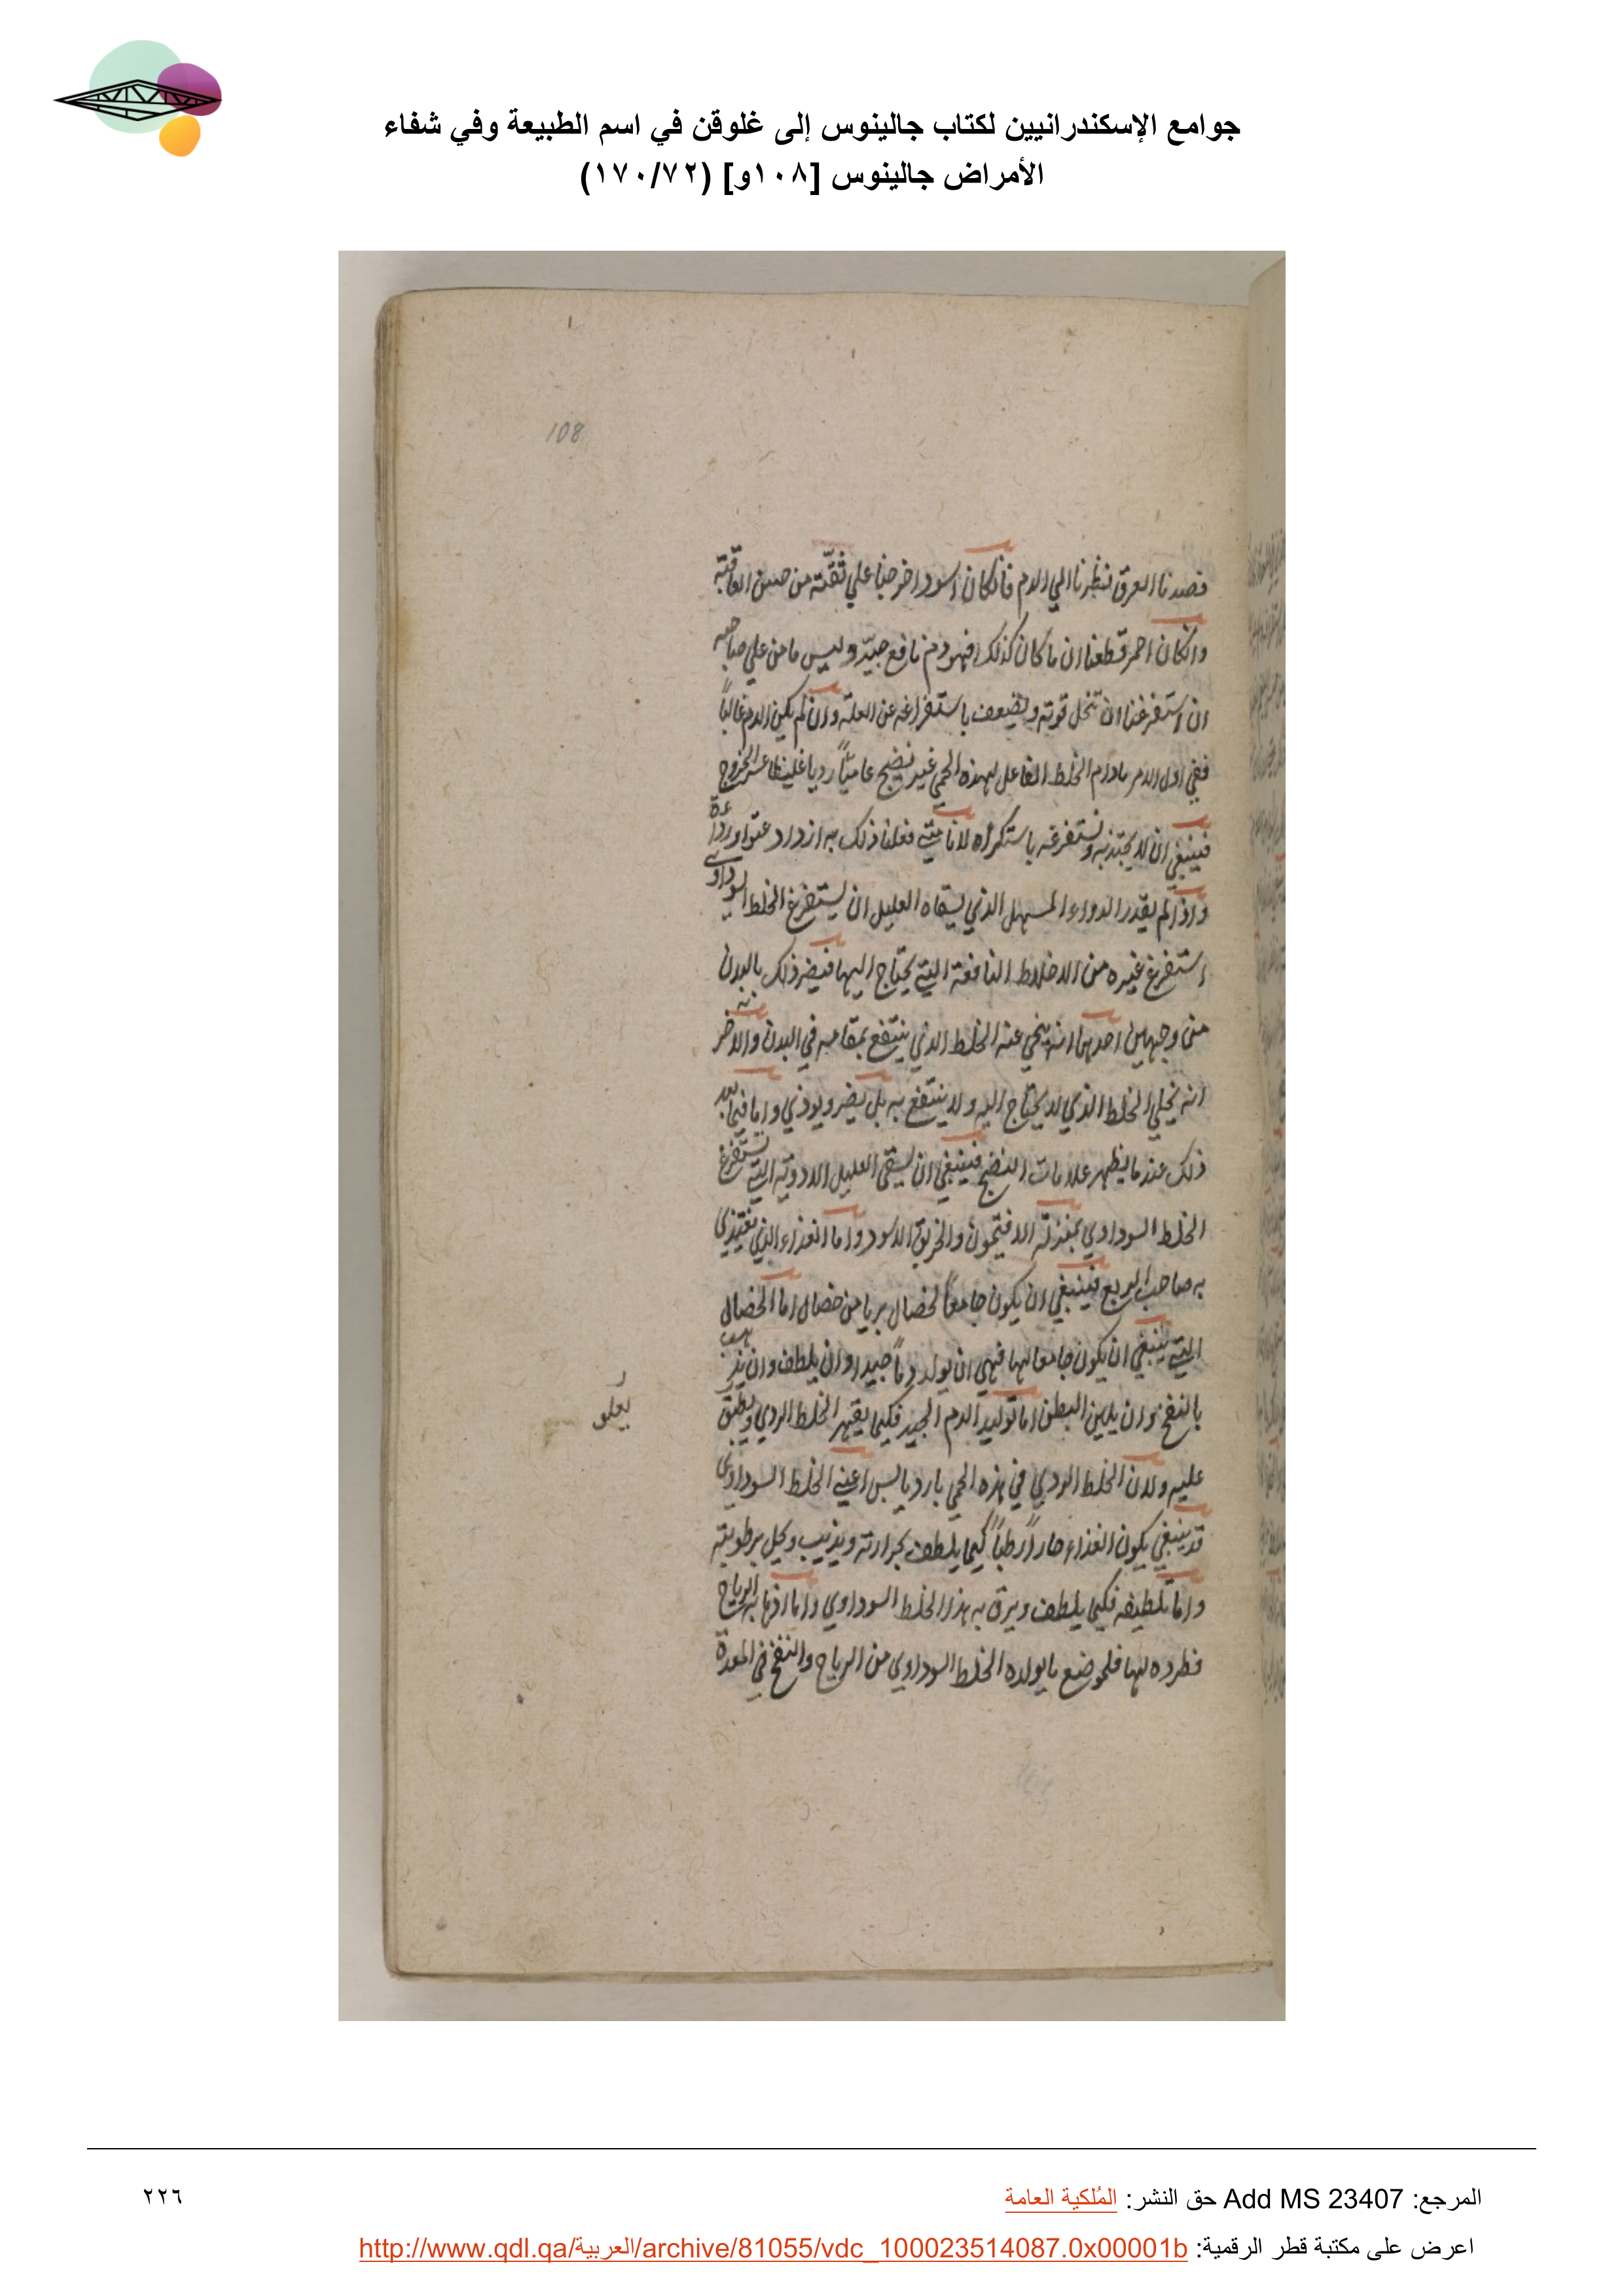 جوامع الإسكندرانيين لكتاب جالينوس إلى غلوقن في اسم الطبيعة وفي شفاء
الأمراض جالينوس [١٠٨و] (١٧٠/٧٢)
108
فصدنا العرق نظرنا الي الدم فان كان اسود اخرجنا علي ثقة من حسن العاقبة
وان كان احمر قطعنا ان ما كان كذلك فهو دم نافع جيد وليس مامن علي صاحبه
ان استفرغنا ان تنحل قوته ويضعف باستفراغه عن العلة وان لم يكن الدم غالبا
ففي اول الامر مادام الخلط الفاعل لهذه الحمي غير نضيج رديا غليظا عسر الخروج
فينبغي ان لا يجتذبه ونستفرغه باستكراه لانا متي فعلنا ذلك به ازداد عتوا ورداة
واذا لم يقدر الدواء المسهل الذي يسقاه العليل ان يستفرغ الخلط السوداوي
استفرغ غيره من الاخلاط النافعة التي يحتاج اليها فيضر ذلك بالبدن
من وجهين احدهما انه ينحي عنه الخلط الذي ينتفع بمقامه في البدن والاخر
انه يخلي الخلط الذي لا يحتاج اليه ولا ينتفع به بل يضر ويوذي واما فيما بعد
ذلك عند ما يظهر علامات النضج فينبغي ان يسقي العليل الادوية التي تستفرغ
الخلط السوداوي بمنزلة الافتيمون والخربق الاسود واما الغذاء الذي يغتذي
به صاحب الربع فينبغي ان يكون جامعا لخصال بريا من خصال اما الخصال
التي ينبغي ان يكون جامعا لها فهي ان يولد دما جيدا وان يلطف وان يذهب
بالنفخ وان يلين البطن اما توليد الدم الجيد فكيما يقهر الخلط الردي
عليه ولان الخلط الردي في هذه الحمي بارد يابس اعني الخلط السوداوي
قد ينبغي يكون الغذاء حارا رطبا كيما يلطف بحرارته ويذيب وكيل برطوبته
واما تلطيفه فكيما يلطف ويرق به هذا الخلط السوداوي واما اذهابه الرياح
وطرده لها فلموضع ما يولده الخلط السوداوي من الرياح والنفخ في المعدة
المرجع: Add MS 23407 حق النشر: المُلكية العامة
٢٢٦
اعرض على مكتبة قطر الرقمية: http://www.qdl.qa/العربية/archive/81055/vdc_100023514087.0x00001b